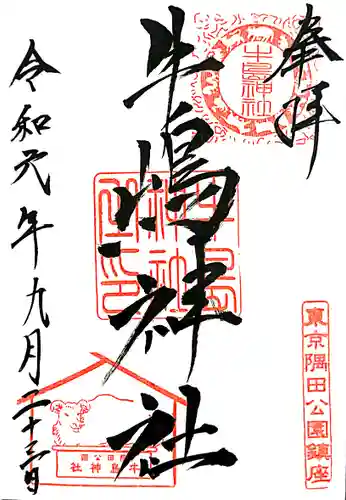 奉拝
牛嶋神社
令和元年九月二十三日
牛島神社
牛島神社之印
東京隅田公園鎮座
隅田公園
牛島神社